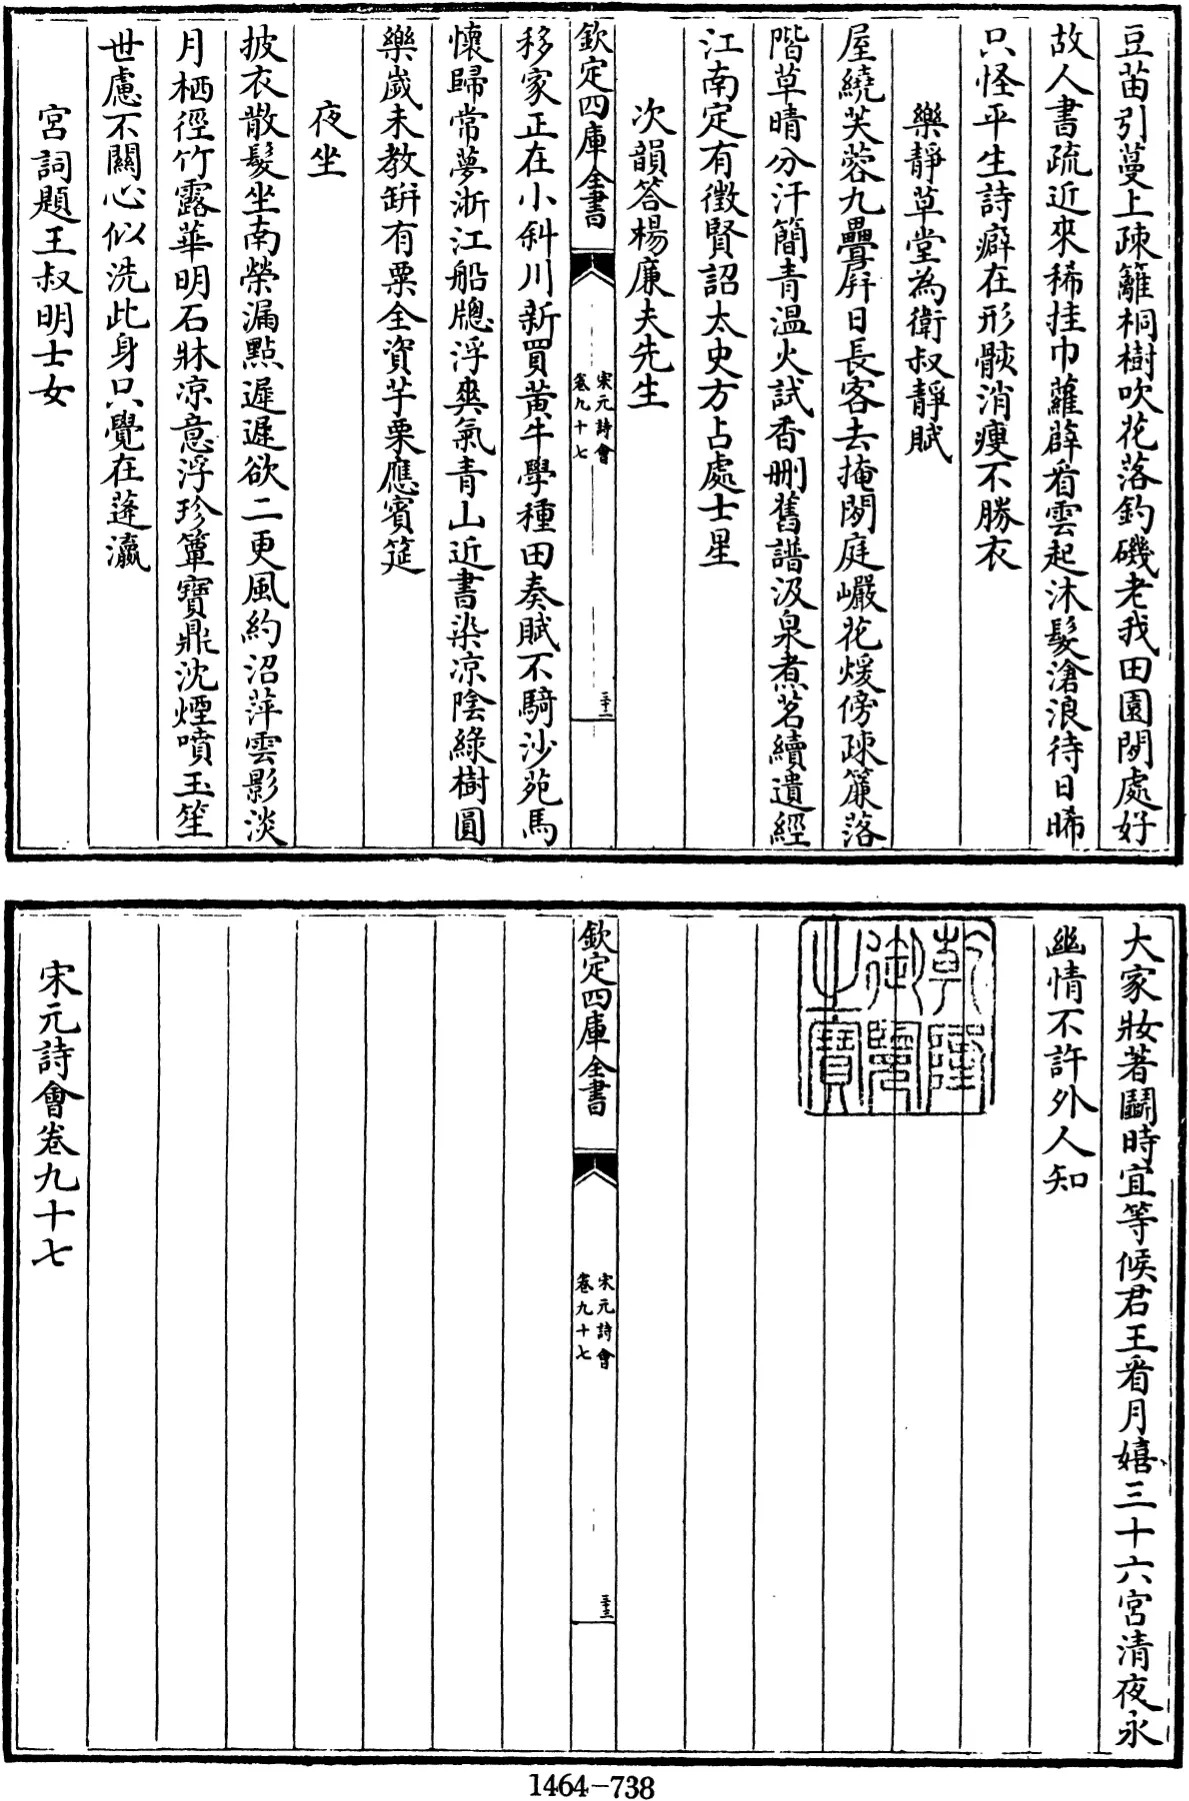 豆苗引蔓上疎籬桐樹吹花落釣磯老我田園閒處好
故人書疏近來稀挂巾蘿薜看雲起沐髮滄浪待日晞
只怪平生詩癖在形骸消瘦不勝衣
樂靜草堂為衛叔靜賦
屋繞芙蓉九疊屏日長客去掩閒庭巗花煖傍疎簾落
階草晴分汗簡青温火試香刪舊譜汲泉煮茗續遺經
江南定有徵賢詔太史方占處士星
次韻答楊廉夫先生
欽定四庫全書
宋元詩會
卷九十七
三十二
移家正在小斜川新買黃牛學種田奏賦不騎沙苑馬
懷歸常夢浙江船牕浮爽氣青山近書染凉陰綠樹圓
樂嵗未教缾有粟全資芋栗應賓筵
夜坐
披衣散髮坐南榮漏點遲遲欲二更風約沼萍雲影淡
月栖徑竹露華明石牀凉意浮珍簟寶鼎沈煙噴玉笙
世慮不關心似洗此身只覺在蓬瀛
宮詞題王叔明士女
大家妝著鬭時宜等候君王看月嬉三十六宮清夜永
幽情不許外人知
乾隆
御覽
之寶
欽定四庫全書
宋元詩會
卷九十七
三十三
宋元詩會卷九十七
1464-738